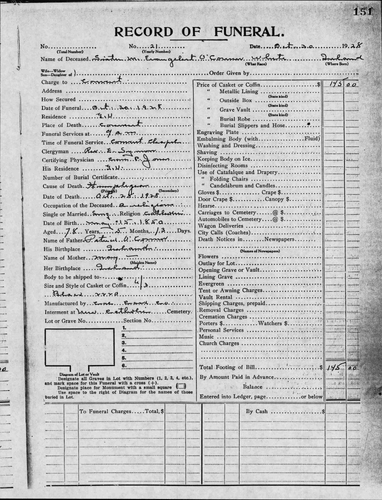 151
RECORD OF FUNERAL.
No. (Total Number) No. 21 (Yearly Number) Date Oct. 30 1928
Name of Deceased Sister M. Evangelist O'Connor White (What Race) Ireland (Where Born)
Wife—Widow Son—Daughter of Order Given by
Charge to Convent
Address
How Secured
Date of Funeral Oct. 30 1928
Residence
Place of Death Convent
Funeral Services at 9 a.m.
Time of Funeral Service Convent Chapel
Clergyman Rev. E.
Certifying Physician
His Residence
Number of Burial Certificate
Cause of Death (Primary) (Secondary)
Date of Death Oct. 28 1928
Occupation of the Deceased A religious
Single or Married Sing. Religion Catholic
Date of Birth May 15 1850
Aged 78 Years 5 Months 13 Days
Name of Father Patrick O'Connor
His Birthplace Ireland
Name of Mother Mary —
Her Birthplace Ireland
Body to be shipped to
Size and Style of Casket or Coffin 6/3
Manufactured by
Interment at Catholic Cemetery
Lot or Grave No. Section No.
1.
2.
3.
4.
5.
6.
Diagram of Lot or Vault
Designate all Graves in Lot with Numbers (1, 2, 3, 4, etc.), and mark space for this Funeral with a cross (+).
Designate place for Monument with a small square
Use space to the right of Diagram for the names of those buried in Lot.
Price of Casket or Coffin $ 145 00
" Metallic Lining (State kind)
" Outside Box (State kind)
" Grave Vault (State kind)
" Burial Robe (State kind)
" Burial Slippers and Hose
Engraving Plate
Embalming Body (with Fluid)
Washing and Dressing
Shaving
Keeping Body on Ice
Disinfecting Rooms
Use of Catafalque and Drapery
" Folding Chairs
" Candelabrum and Candles
Gloves $ Crape $
Door Crape $ Canopy $
Hearse
Carriages to Cemetery @ $
Automobiles to Cemetery @ $
Wagon Deliveries
City Calls (Coaches)
Death Notices in Newspapers
(Names of Newspapers)
Flowers
Outlay for Lot
Opening Grave or Vault
Lining Grave
Evergreen
Tent or Awning Charges
Vault Rental
Shipping Charges, prepaid
Removal Charges
Cremation Charges
Porters $ Watchers $
Personal Services
Music
Church Charges
Total Footing of Bill $ 145 00
By Amount Paid in Advance
Balance
Entered into Ledger, page or below
To Funeral Charges Total $ By Cash $